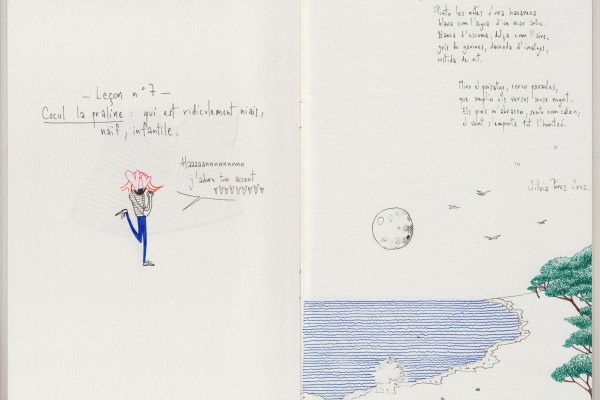 — Leçon n° 7 —
Cocul la praline : qui est ridiculement niais,
naïf, infantile.
Haaaaannnnnnnnn
j'adore ton accent
Pinto les notes d'una havanera
blava com l'aigua d'un mar antic.
Blanca d'escuma, dolça com l'aire,
gris de gavines, daurada d'imatges,
vestida de nit.
Miro el paisatge, cerco paraules,
que omplin els versos sense neguit.
Els pins m'abracen, sento com callen,
el vent s'emporta tot l'horitzó.
Silvia Pérez Cruz.